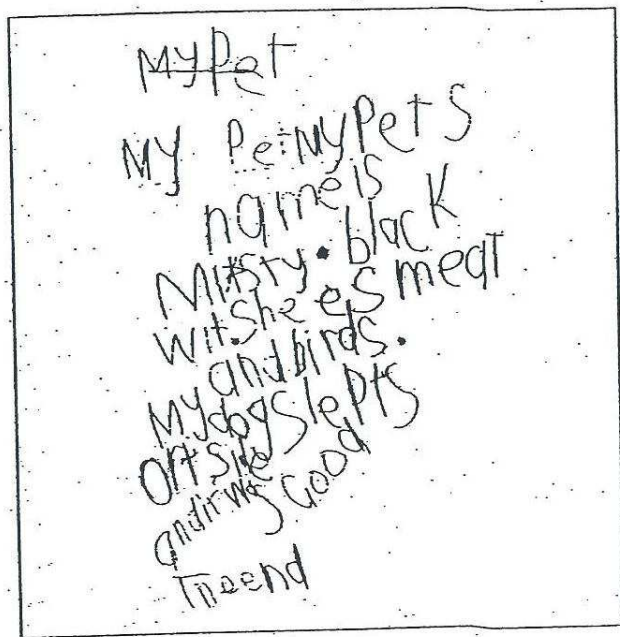 My Pet
My Pet My Pets
name is
Misty. black
wit. she es meat
and birds.
My dog slepts
ontside
and ir was Good
The end